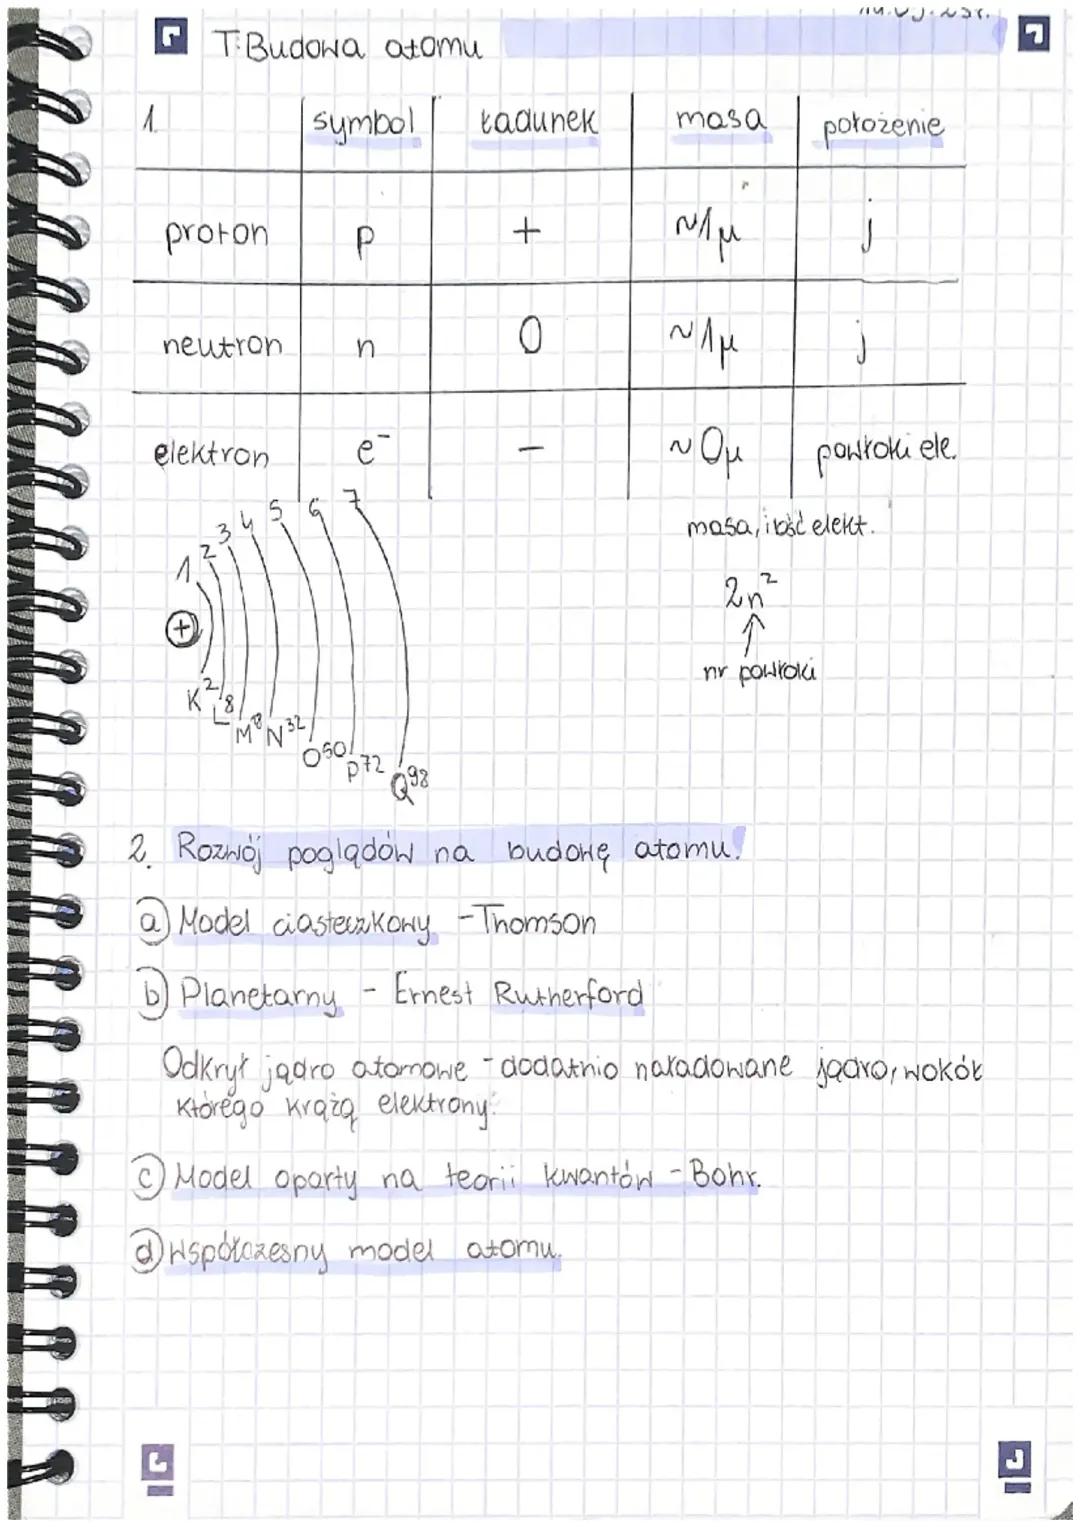 T: Budowa atomu
1. symbol ładunek masa położenie
proton p + ~1μ j
neutron n 0 ~1μ j
elektron e⁻ - ~0μ powłoki ele.
1 2 3 4 5 6 7
masa, ilość elekt.
2n²
+
nr powłoki
K² L⁸ M⁸ N³² O⁵⁰ P⁷² Q⁹⁸
2. Rozwój poglądów na budowę atomu.
a) Model ciasteczkowy - Thomson
b) Planetarny - Ernest Rutherford
Odkrył jądro atomowe - dodatnio naładowane jądro, wokół
którego krążą elektrony.
c) Model oparty na teorii kwantów - Bohr.
d) Współczesny model atomu.